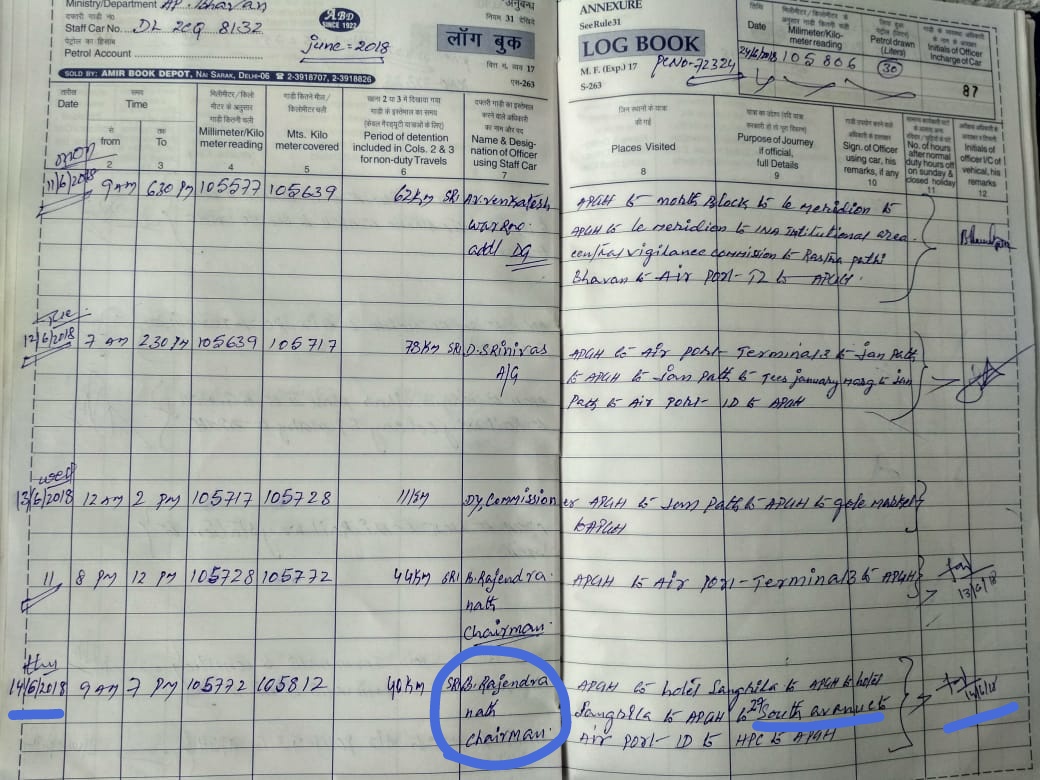 Ministry/Department AP. Bhavan
दफ्तरी गाड़ी न०
Staff Car No. DL 2CQ 8132
पेट्रोल का हिसाब
Petrol Account
ABD
SINCE 1927
june=2018
अनुबन्ध
नियम 31 देखिये
लॉग बुक
वित्त. व्यय 17
एस-263
SOLD BY: AMIR BOOK DEPOT, NAI SARAK, DELHI-06 ☎ 2-3918707, 2-3918826
ANNEXURE
See Rule 31
LOG BOOK
M. F. (Exp.) 17
S-263
PCNO-72324
तिथि
Date
Millimeter/Kilo-
meter reading
Petrol drawn
(Liters)
Initials of Officer
Incharge of Car
24/6/2018 105806 30
87
तारीख
Date
समय
Time
से
from
तक
To
Millimeter/Kilo
meter reading
Mts. Kilo
meter covered
Period of detention
included in Cols. 2 & 3
for non-duty Travels
Name & Desig-
nation of Officer
using Staff Car
जिन स्थानों की यात्रा
की गई
Places Visited
Purpose of Journey
if official,
full Details
Sign. of Officer
using car, his
remarks, if any
No. of hours
after normal
duty hours off
on sunday &
closed holiday
Initials of
officer I/C of
vehical, his
remarks
2 3 4 5 6 7 8 9 10 11 12
mon
11/6/2018 9 AM 630 PM 105577 105639 62KM SRI Ar.venkatesh APGH to north Block to le meridion to
APGH to le meridion to INA Intitutional area
addl DG central vigilance commission to Rastra pathi
Bhavan to Air port- T2 to APGH.
Tue
12/6/2018 7 AM 230 PM 105639 105717 78KM SRI D.SRinivas APGH to Air port- Terminal3 to Jan path
A/G to APGH to Jan path to Tees january marg to Jan
Path to Air port- ID to APGH
wed
13/6/2018 12 AM 2 PM 105717 105728 11KM Dy,Commissioner APGH to Jan Path to APGH to gole market
to APGH
11 8 PM 12 PM 105728 105772 44KM SRI B.Rajendra APGH to Air port- Terminal3 to APGH
nath
Chairman. 13/6/18
thu
14/6/2018 9 AM 7 PM 105772 105812 40KM SRI B.Rajendra APGH to hotel Sanghila to APGH to hotel
nath Sanghila to APGH to 29 South avanue to 14/6/18
chairman. Air port- ID to HPC to APGH